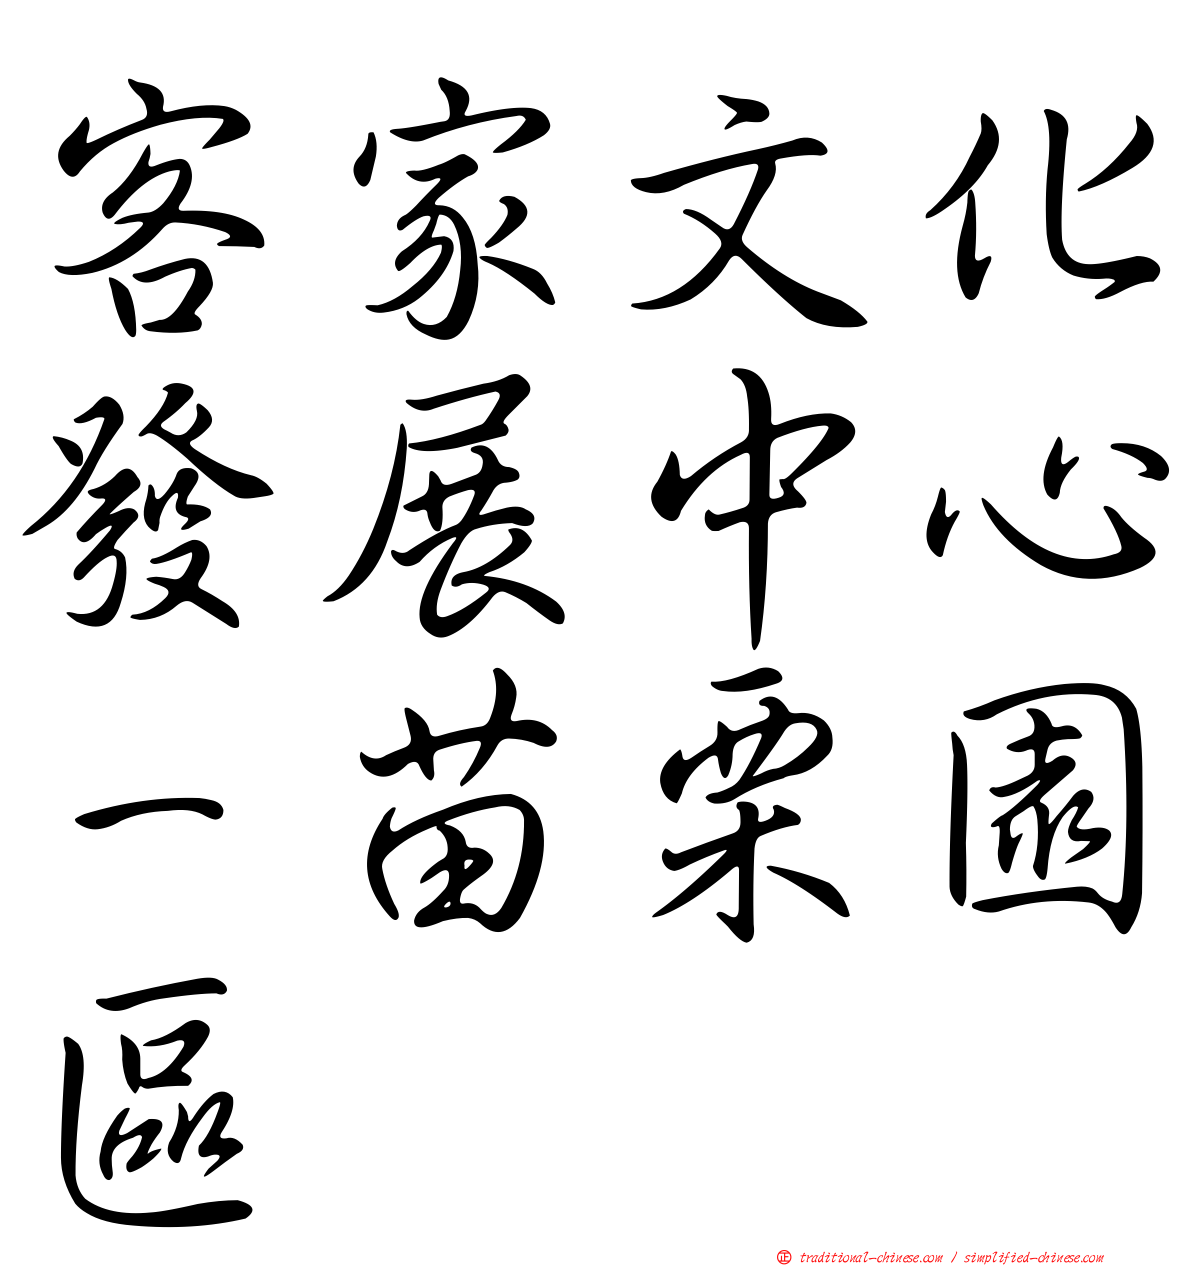 客家文化
發展中心
一苗栗園
區
正 traditional-chinese.com / simplified-chinese.com